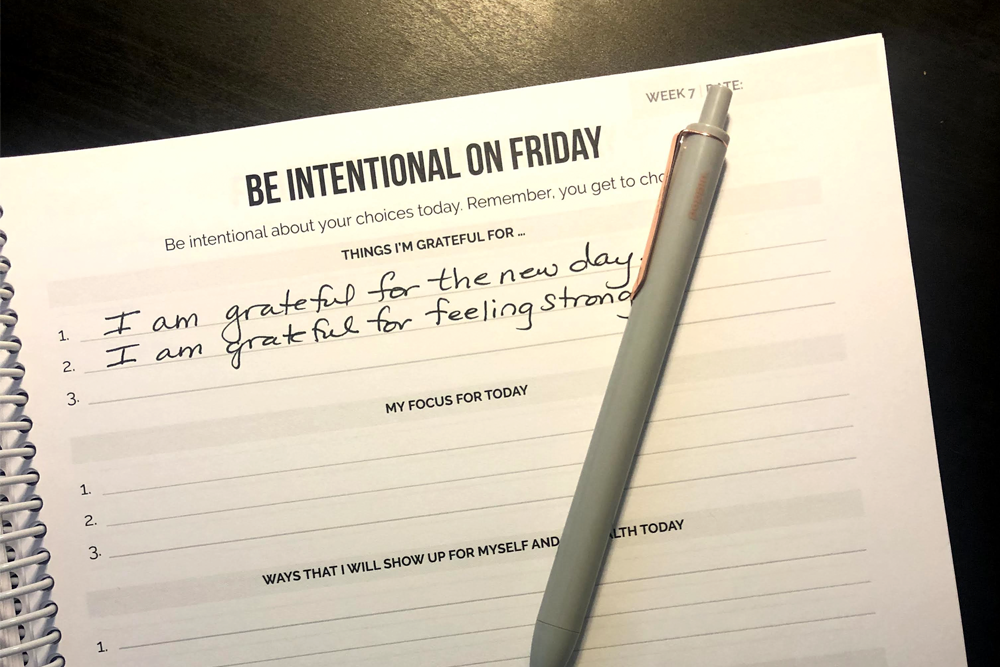 WEEK 7 | DATE:
BE INTENTIONAL ON FRIDAY
Be intentional about your choices today. Remember, you get to
THINGS I'M GRATEFUL FOR ...
1. I am grateful for the new day.
2. I am grateful for feeling strong
3.
MY FOCUS FOR TODAY
1.
2.
3.
WAYS THAT I WILL SHOW UP FOR MYSELF AND TODAY
1.